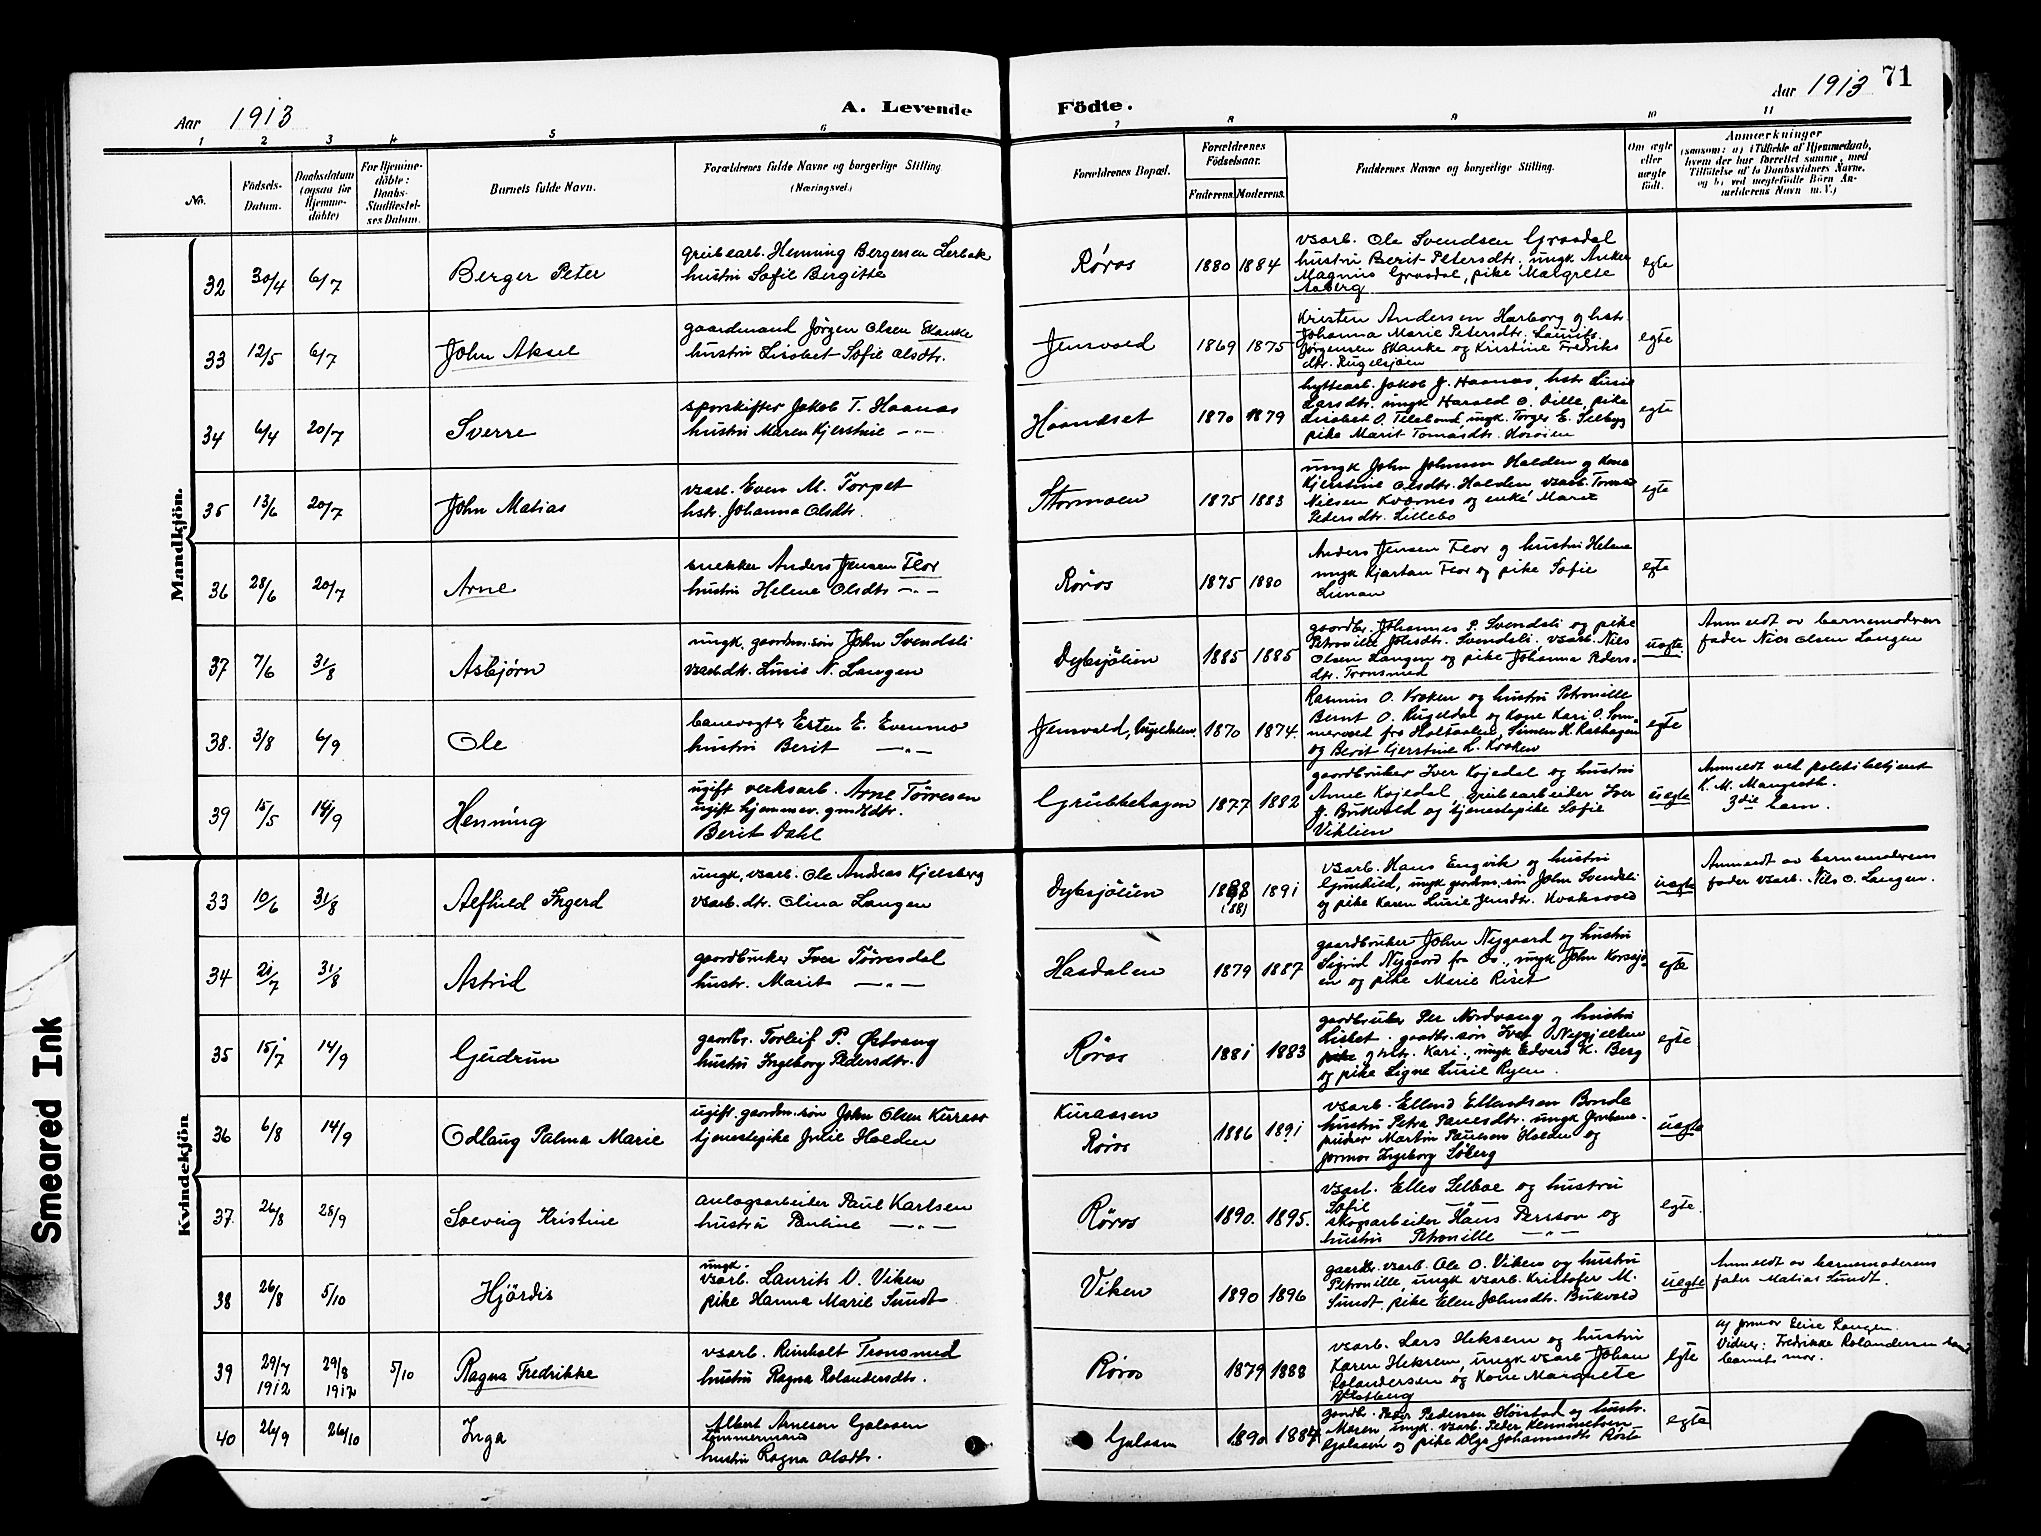 71
Aar 1913
A. Levende Födte.
Aar 1913
1 2 3 4 5 6 7 8 9 10 11
No.
Födsels-Datum.
Daabsdatum (ogsaa for Hjemme-döbte)
For Hjemme-döbte: Daabs-Stadfæstel-ses Datum.
Barnets fulde Navn.
Forældrenes fulde Navne og borgerlige Stilling.
(Næringsvei.)
Forældrenes Bopæl.
Forældrenes Födselsaar.
Faderens. Moderens.
Faddernes Navne og borgerlige Stilling.
Om ægte eller uægte födt.
Anmærkninger
(saasom: a) i Tilfælde af Hjemmedaab,
hvem der har forrettet samme, med
Tilföielse af to Daabsvidners Navne,
og b) ved uægtefödte Börn An-
melderens Navn m. V.)
Mandkjön.
32 30/4 6/7 Berger Peter
grubearb. Henning Bergersen Lerbak
hustru Sofie Bergitte
Røros 1880 1884
vsarb. Ole Svendsen Graadal
hustru Berit Petersdtr, ungk Anker
Magnus Graadal, pike Margrete
Aaberg
egte
33 12/5 6/7 John Aksel
gaardmand Jørgen Olsen Skanke
hustru Lisbet Sofie Olsdtr.
Jensvold 1869 1875
Kristen Andersen Harborg og hstr.
Johanna Marie Petersdtr. Laurits
Jørgensen Skanke og Kristine Fredriks
dtr. Rugelsjøen
egte
34 6/4 20/7 Sverre
sporskifter Jakob T. Haanas
hustru Maren Kjerstine -"-
Haandset 1870 1879
hyttearb. Jakob J. Haanas, hstr Lusie
Larsdtr. ungk Harald O. Lille, pike
Lisabet O. Telebond, ungk. Torger E. Selbyg
pike Marit Tomasdtr.
egte
35 13/6 20/7 John Matias
vsarb. Even M. Torpet
hstr. Johanna Olsdtr.
Stormoen 1875 1883
ungk John Johnsen Halden og kone
Kjerstine Olsdtr. Halden vsarb. Tomas
Nielsen Kværnes og enke Maret
Pedersdtr. Lillebo
egte
36 28/6 20/7 Arne
snekker Anders Jensen Flor
hustru Helene Olsdtr -"-
Røros 1875 1880
Anders Jensen Flor og hustru Helene
ungk Kjartan Flor og pike Sofie
Lunau
egte
37 7/6 31/8 Asbjørn
ungk, gaardm.søn John Svendsli
vsarb.dtr. Lusie N. Langen
Dybsjølien 1885 1885
gaardbr. Johannes P. Svendsli og pike
Petronille Johsdtr. Svendsli, vsarb. Nils
Olsen Langen og pike Johanna Peders-
dtr. Tronsmed
uegte.
Anmeldt av barnemoderens
fader Nils Olsen Langen
38. 3/8 6/9 Ole
banevogter Esten E. Evenmo
hustru Berit -"-
Jensvold, Rugeldalen 1870 1874.
Rasmus O. Kroken og hustru Petronille
Bernt O. Rugeldal og Kone Kari O. Som-
mervold fra Holtaalen, Simen H. Karhagen
og Berit Gjerstine L. Kroken
egte
39 15/5 14/9 Henning
ugift verksarb. Arne Tørresen
ugift hjemmev. gmdsdtr.
Berit Dahl
Grubbehagen 1877 1882
gaardbruker Iver Kojedal og hustru
Anne Kojedal, grubearbeider Iver
J. Bukvold og tjenestepike Sofie
Viklien
uegte
Anmeldt ved politibetjent
K. M. Mangseth.
3die barn.
Kvindekjön
33 10/6 31/8 Alfhild Ingerd
ungk, vsarb. Ole Andreas Kjelsberg
vsarb. dtr. Olina Langen
Dybsjølien 1888 (88) 1891
vsarb. Hans Engvik og hustru
Gunhild, ungk gaardm.søn John Svendsli
og pike Karen Lusie Jensdtr.
uegte
Anmeldt av barnemoderens
fader vsarb. Nils O. Langen.
34 21/7 31/8 Astrid
gaardbruker Iver Tørresdal
hustr. Marit -"-
Hasdalen 1879 1887
gaardbruker John Nygaard og hustru
Sigrid Nygaard fra Os., ungk John Korssjø-
en og pike Marie Riset
egte
35 15/7 14/9 Gudrun
gaardbr. Torleif P. Østvang
hustru Ingeborg Pedersdtr.
Røros 1881 1883
gaardbruker Per Nordvang og hustru
Lisbet. gaardbr.søn Iver Nygjelten
pike og hstr. Kari., ungk Edvard K. Berg
og pike Signe Lusie Ryen.
egte
36 6/8 14/9 Odlaug Palma Marie
ugift. gaardm.søn John Olsen Kuraas
tjenestepike Julie Holden
Kuraasen
Røros 1886 1891
vsarb. Ellend Ellendsen Bonde
hustru Petra Paulsdtr. ungk Grube-
pudser Martin Paulsen Holden og
jormor Ingeborg Søberg
uegte
37. 26/8 28/9 Solveig Kristine
anlægsarbeider Paul Karlsen
hustru Pauline -"-
Røros 1890. 1895.
vsarb. Ellev Selboe og hustru
Sofie
skogsarbeider Hans Persson og
hustru Petronille -"-
egte.
38 26/8 5/10 Hjördis
ungk.
vsarb. Laurits O. Viken
pike Hanna Marie Sundt
Viken 1890 1896
gaardbr. vsarb. Ole O. Viken og hustru
Petronille, ungk vsarb. Kristofer M.
Sundt, pike Elen Johnsdtr. Bukvold
uegte
Anmeldt av barnemoderens
fader Matias Sundt.
39 29/7 1912 29/8 1912 5/10 Ragna Fredrikke
vsarb. Reinholt Tronsmed
hustru Ragna Rolandersdtr.
Røros 1879 1888
vsarb. Lars Heksem og hustru
Karen Heksem, ungk vsarb Johan
Rolandersen og Kone Margrete
Vestberg
egte
af jormor Elise Langen.
Vidner: Fredrikke Rolandersen samt
barnets mor.
40 26/9 26/10 Inga
Albert Arnesen Galaaen
tømmermand
hustru Ragna Olsdtr.
Galaaen 1890 1884
gaardbr. Peder Pedersen Høistad og hustr.
Maren, ungk. vsarb. Peder Hemmelsen
Galaaen og pike Olga Johannesdtr Røste
egte
Smeared Ink